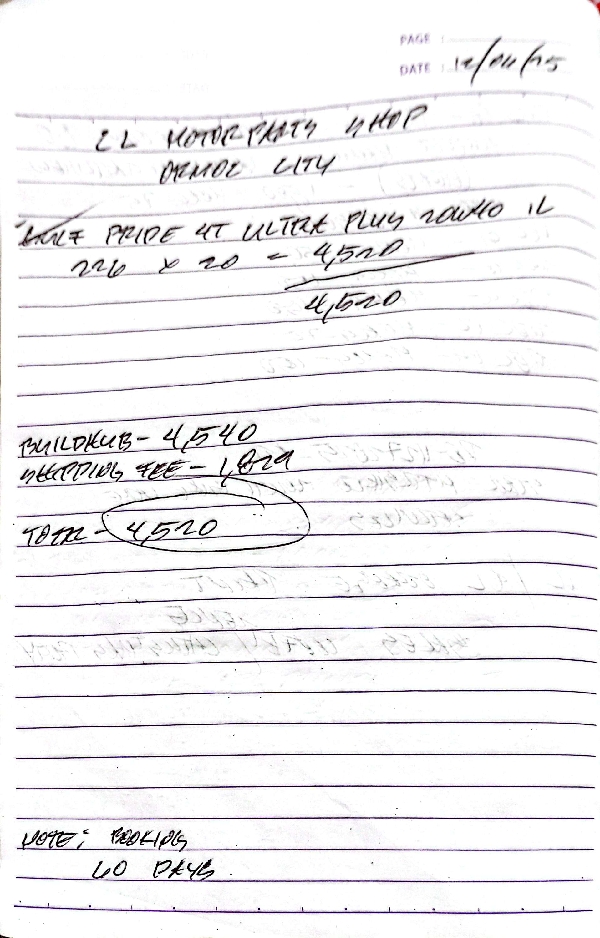 PAGE :
DATE : 12/04/25
2L MOTORPARTS SHOP
ORMOC CITY
PRIDE 4T ULTRA PLUS 20W40 1L
226 x 20 = 4,520
4,520
BUILDHUB - 4,540
SHIPPING FEE - 1,829
TOTAL - 4,520
NOTE: BOOKING
60 DAYS